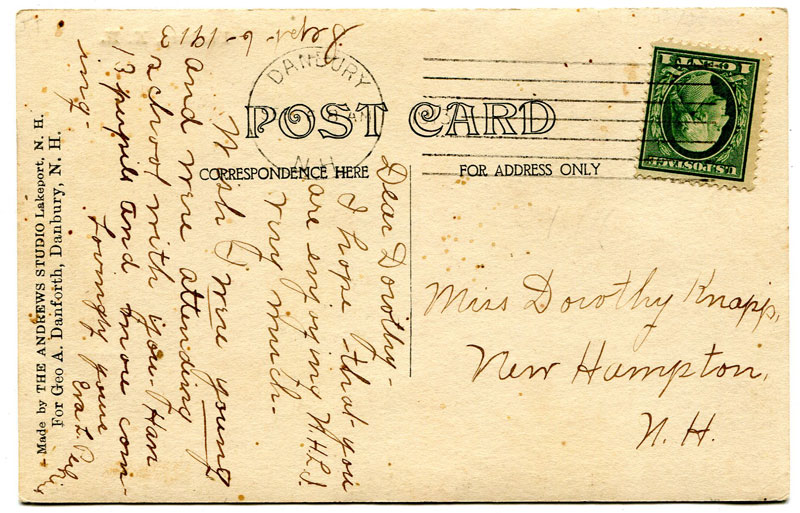 POST CARD
CORRESPONDENCE HERE
FOR ADDRESS ONLY
DANBURY
AM
N.H.
U.S.POSTAGE
1 CENT 1
Sept-6-1913
Dear Dorothy-
I hope that you
are enjoying
very much-
Wish I were young
and were attending
school with you. Have
13 pupils and more com-
ing-
Lovingly yours
Eva L.
Miss Dorothy Knapp,
New Hampton,
N.H.
Made by THE ANDREWS STUDIO Lakeport, N. H.
For Geo A. Danforth, Danbury, N. H.